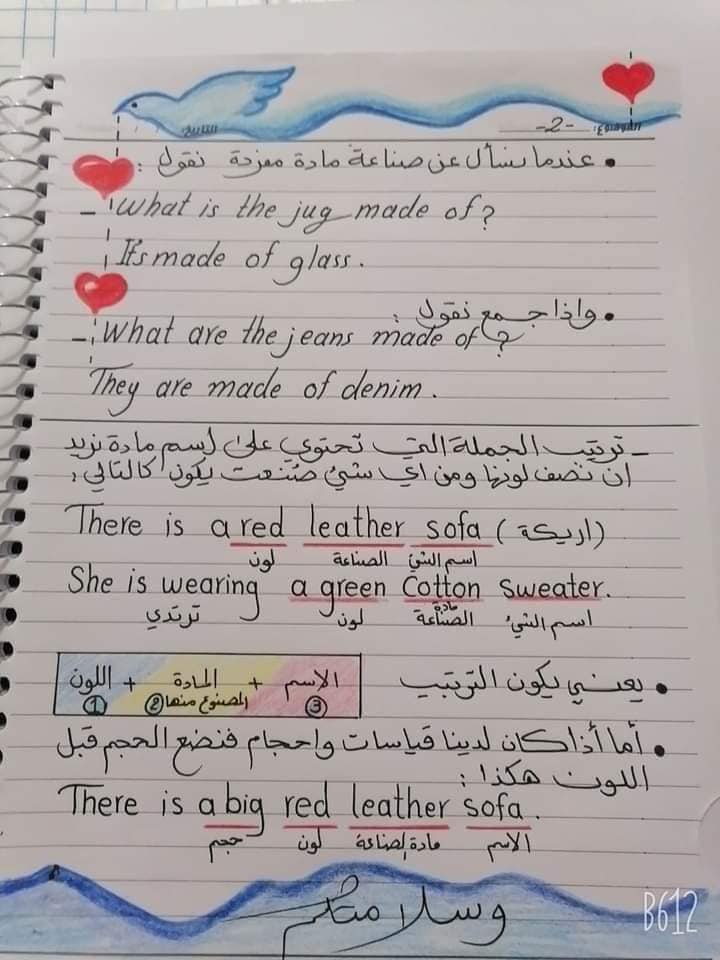 الموضوع: -2- التاريخ
• عندما نسأل عن صناعة مادة مفردة نقول :
- What is the jug made of?
It's made of glass.
• واذا جمع نقول :
- What are the jeans made of?
They are made of denim.
- ترتيب الجملة التي تحتوي على اسم مادة نريد
ان نصف لونها ومن اي شيء صُنعت يكون كالتالي :
There is a red leather sofa (اريكة)
لون الصناعة اسم الشيء
She is wearing a green Cotton sweater.
ترتدي لون مادة الصناعة اسم الشيء
• يعني يكون الترتيب
اللون + المادة + الاسم
① ② المصنوع منها ③
• أما أذا كان لدينا قياسات واحجام فنضع الحجم قبل
اللون هكذا :
There is a big red leather sofa.
حجم لون مادة الصناعة الاسم
B612